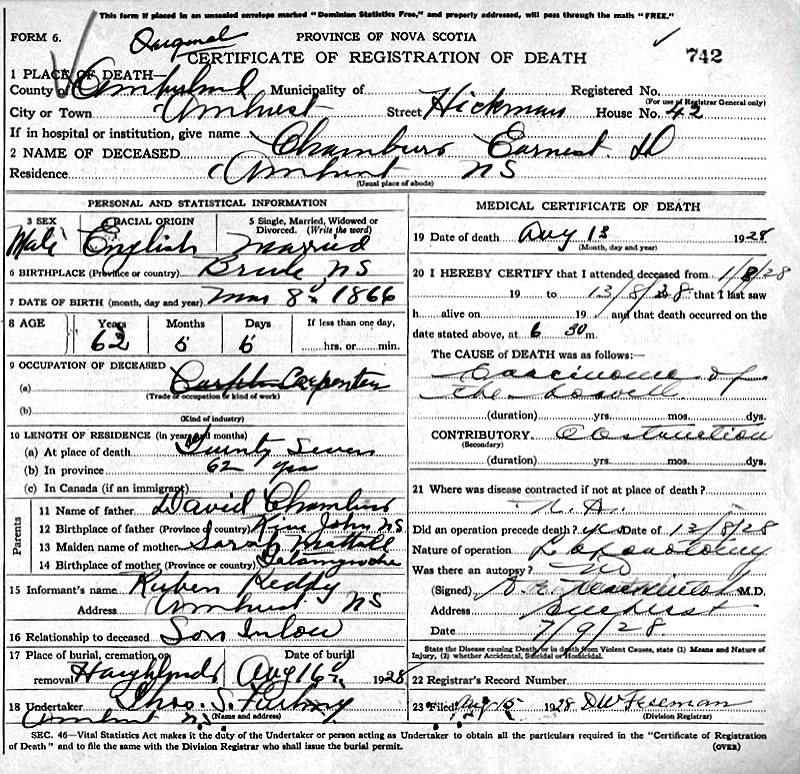 This form if placed in an unsealed envelope marked "Dominion Statistics Free," and properly addressed, will pass through the mails "FREE."
FORM 6. Original PROVINCE OF NOVA SCOTIA
CERTIFICATE OF REGISTRATION OF DEATH 742
1 PLACE OF DEATH—
County of Municipality of Registered No.
(For use of Registrar General only)
City or Town Amherst Street Hickman House No. 42
If in hospital or institution, give name
2 NAME OF DECEASED Chambers Earnest D
Residence Amherst NS
(Usual place of abode)
PERSONAL AND STATISTICAL INFORMATION
3 SEX 4 RACIAL ORIGIN 5 Single, Married, Widowed or Divorced. (Write the word)
Male English Married
6 BIRTHPLACE (Province or country) NS
7 DATE OF BIRTH (month, day and year) Mar 8th 1866
8 AGE Years Months Days If less than one day,
62 5 6 hrs. or min.
9 OCCUPATION OF DECEASED
(a) Carpenter
(Trade or occupation or kind of work)
(b)
(Kind of industry)
10 LENGTH OF RESIDENCE (in years and months)
(a) At place of death Twenty Seven
(b) In province 62 yrs
(c) In Canada (if an immigrant)
Parents
11 Name of father David Chambers
12 Birthplace of father (Province or country) NS
13 Maiden name of mother Sarah
14 Birthplace of mother (Province or country) Tatamagouche
15 Informant's name Ruben Reddy
Address Amherst NS
16 Relationship to deceased Son Inlow
17 Place of burial, cremation or removal Date of burial
Highlands Aug 16th 1928
18 Undertaker Thos. S.
Amherst NS (Name and address)
MEDICAL CERTIFICATE OF DEATH
19 Date of death Aug 13 1928
(Month, day and year)
20 I HEREBY CERTIFY that I attended deceased from 1/8/28
19 to 13/8/28 that I last saw
h alive on 19 and that death occurred on
date stated above, at 6 30 m.
The CAUSE of DEATH was as follows:—
Carcinoma of
the bowell
(duration) yrs. mos. dys.
CONTRIBUTORY Obstruction
(Secondary)
(duration) yrs. mos. dys.
21 Where was disease contracted if not at place of death?
N.A.
Did an operation precede death? yes Date of 12/8/28
Nature of operation Laparotomy
Was there an autopsy? No
(Signed) M.D.
Address Amherst
Date 7/9/28
State the Disease causing Death, or in death from Violent Causes, state (1) Means and Nature of Injury, (2) whether Accidental, Suicidal or Homicidal.
22 Registrar's Record Number
23 Filed Aug 15 1928 D W Freeman
(Division Registrar)
SEC. 46—Vital Statistics Act makes it the duty of the Undertaker or person acting as Undertaker to obtain all the particulars required in the "Certificate of Registration of Death" and to file the same with the Division Registrar who shall issue the burial permit. (OVER)